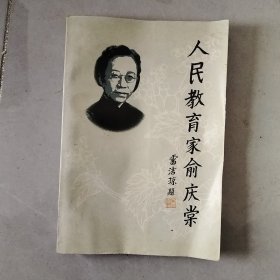 人民教育家俞庆棠
雷洁琼题